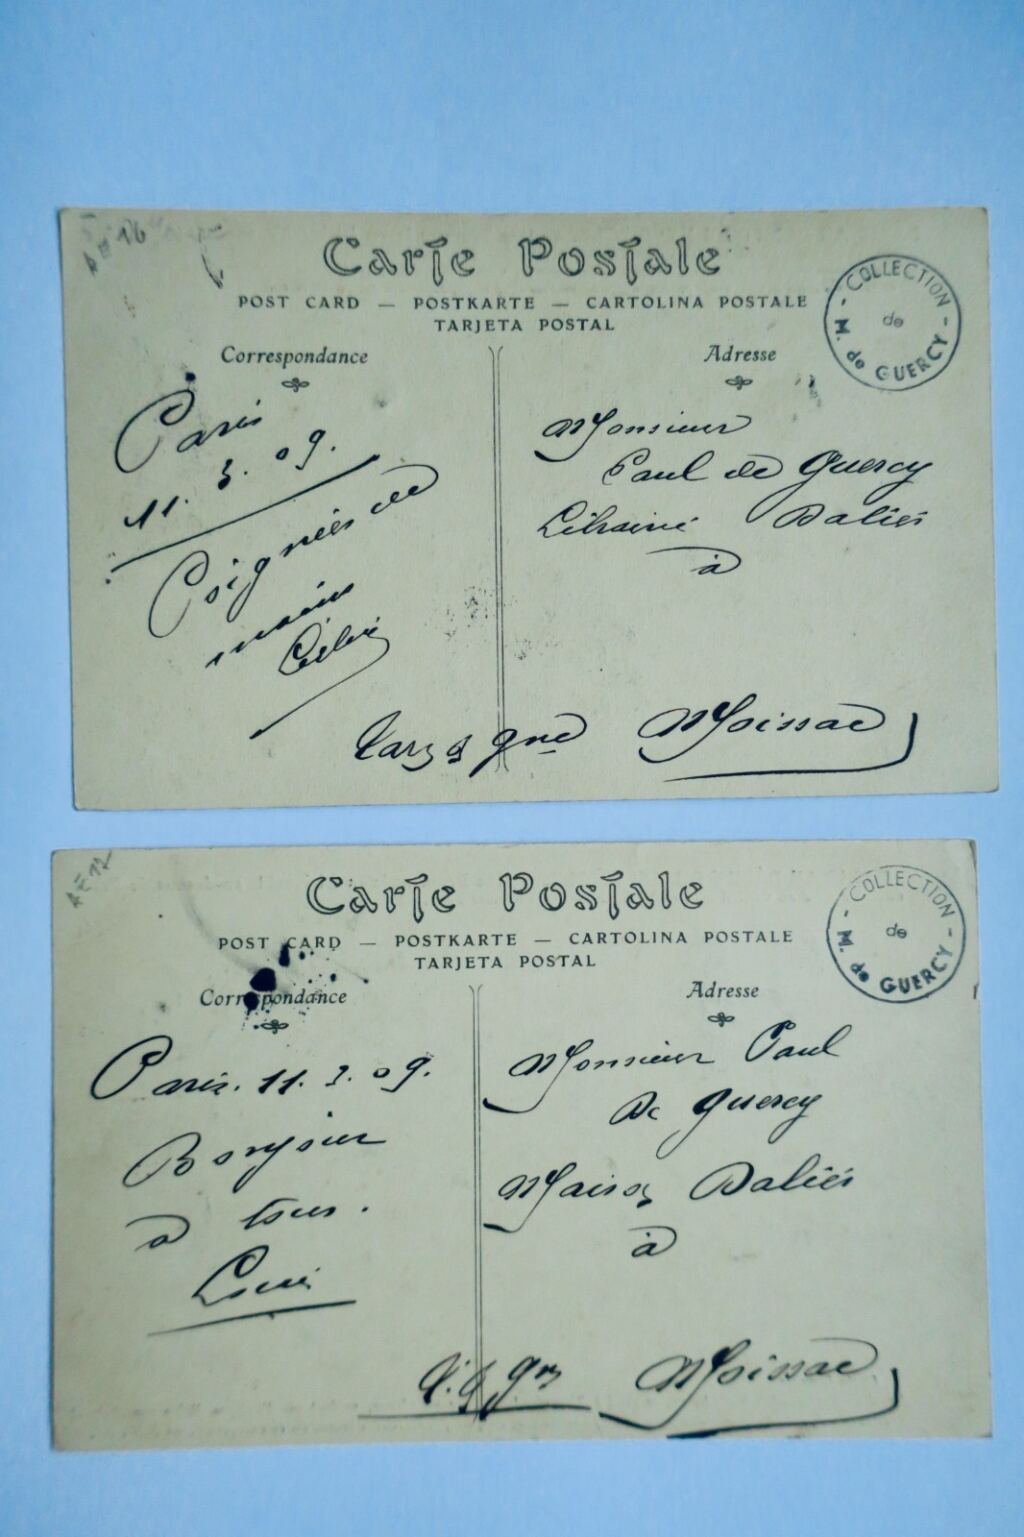 AE 16
Carte Postale
POST CARD — POSTKARTE — CARTOLINA POSTALE
TARJETA POSTAL
COLLECTION
de
M. de GUERCY
Correspondance
Adresse
Paris
11. 3. 09.
Poignées de
mains
Monsieur
Paul de Quercy
Librairie Daliès
à
Moissac
AE 17
Carte Postale
POST CARD — POSTKARTE — CARTOLINA POSTALE
TARJETA POSTAL
COLLECTION
de
M. de GUERCY
Correspondance
Adresse
Paris. 11. 3. 09.
Bonjour
à tous.
Louis
Monsieur Paul
De Quercy
Maison Daliès
à
Moissac